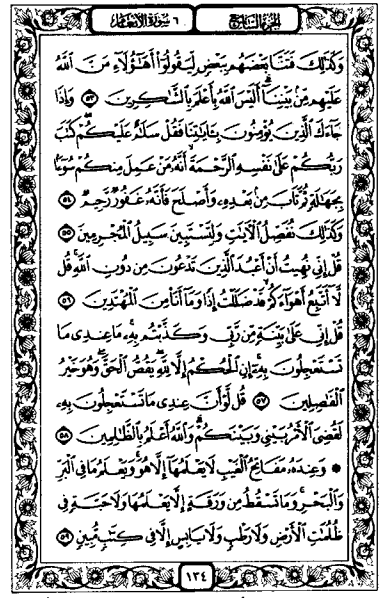 الجزء السابع ٦ سورة الأنعام
وَكَذَٰلِكَ فَتَنَّا بَعْضَهُم بِبَعْضٍ لِّيَقُولُوٓا۟ أَهَـٰٓؤُلَآءِ مَنَّ ٱللَّهُ
عَلَيْهِم مِّنۢ بَيْنِنَآ ۗ أَلَيْسَ ٱللَّهُ بِأَعْلَمَ بِٱلشَّـٰكِرِينَ ٥٣ وَإِذَا
جَآءَكَ ٱلَّذِينَ يُؤْمِنُونَ بِـَٔايَـٰتِنَا فَقُلْ سَلَـٰمٌ عَلَيْكُمْ ۖ كَتَبَ
رَبُّكُمْ عَلَىٰ نَفْسِهِ ٱلرَّحْمَةَ ۖ أَنَّهُۥ مَنْ عَمِلَ مِنكُمْ سُوٓءًۢا
بِجَهَـٰلَةٍ ثُمَّ تَابَ مِنۢ بَعْدِهِۦ وَأَصْلَحَ فَأَنَّهُۥ غَفُورٌ رَّحِيمٌ ٥٤
وَكَذَٰلِكَ نُفَصِّلُ ٱلْـَٔايَـٰتِ وَلِتَسْتَبِينَ سَبِيلُ ٱلْمُجْرِمِينَ ٥٥
قُلْ إِنِّى نُهِيتُ أَنْ أَعْبُدَ ٱلَّذِينَ تَدْعُونَ مِن دُونِ ٱللَّهِ ۚ قُل
لَّآ أَتَّبِعُ أَهْوَآءَكُمْ ۙ قَدْ ضَلَلْتُ إِذًا وَمَآ أَنَا۠ مِنَ ٱلْمُهْتَدِينَ ٥٦
قُلْ إِنِّى عَلَىٰ بَيِّنَةٍ مِّن رَّبِّى وَكَذَّبْتُم بِهِۦ ۚ مَا عِندِى مَا
تَسْتَعْجِلُونَ بِهِۦٓ ۚ إِنِ ٱلْحُكْمُ إِلَّا لِلَّهِ ۖ يَقُصُّ ٱلْحَقَّ ۖ وَهُوَ خَيْرُ
ٱلْفَـٰصِلِينَ ٥٧ قُل لَّوْ أَنَّ عِندِى مَا تَسْتَعْجِلُونَ بِهِۦ
لَقُضِىَ ٱلْأَمْرُ بَيْنِى وَبَيْنَكُمْ ۗ وَٱللَّهُ أَعْلَمُ بِٱلظَّـٰلِمِينَ ٥٨
۞ وَعِندَهُۥ مَفَاتِحُ ٱلْغَيْبِ لَا يَعْلَمُهَآ إِلَّا هُوَ ۚ وَيَعْلَمُ مَا فِى ٱلْبَرِّ
وَٱلْبَحْرِ ۚ وَمَا تَسْقُطُ مِن وَرَقَةٍ إِلَّا يَعْلَمُهَا وَلَا حَبَّةٍ فِى
ظُلُمَـٰتِ ٱلْأَرْضِ وَلَا رَطْبٍ وَلَا يَابِسٍ إِلَّا فِى كِتَـٰبٍ مُّبِينٍ ٥٩
١٣٤